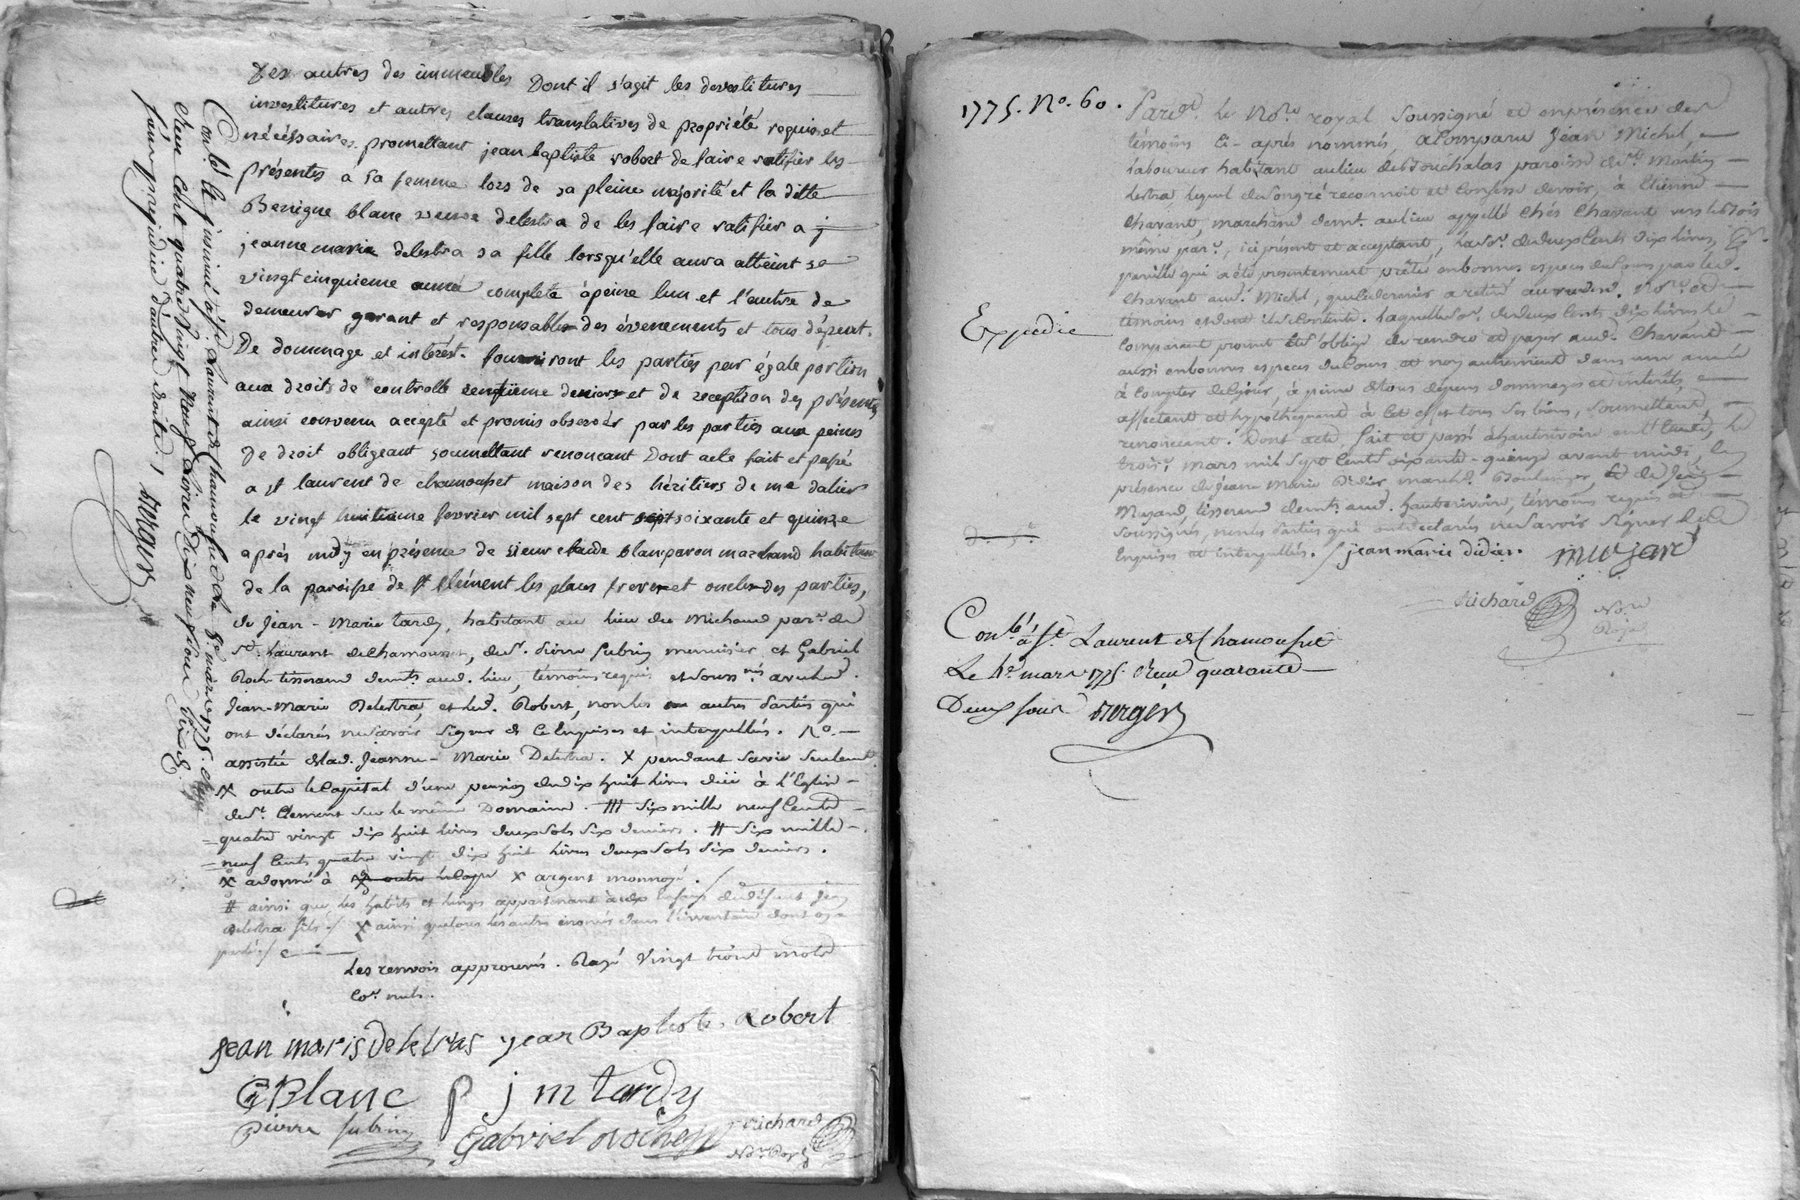 des autres des immeubles Dont il s'agit les devestitures
investitures et autres clauses translatives de propriété requis et
nécéssaires promettant jean baptiste robert de faire ratifier les
présentes a sa femme lors de sa pleine majorité et la ditte
Benigne blanc veuve delestra de les faire ratifier a
jeanne marie delestra sa fille lorsqu'elle aura atteint sa
vingt cinquieme année complete àpeine lun et l'autre de
demeurer garant et responsables des évenements et tous dépent.
De dommage et intérest. fourniront les parties par égale portion
aux droits de controlle centieme deniers et de reception des présentes
ainsi convenu accepté et promis observér par les parties aux peines
de droit obligeant soumettant renonçant Dont acte fait et passé
a st laurent de chamousset maison des héritiers de me dalier
le vingt huitieme fevrier mil sept cent soixante et quinze
aprés midy en présence de sieur claude blanc marchand habitant
de la paroisse de st clément les places frere et oncle des parties,
de Jean-Marie tardy, habitant au lieu du Michaud par.e de
St. Laurent de Chamousset, de Sr. Pierre Subrin menuisier et Gabriel
Roch tisserand demts aud. lieu, témoins requis et soussnés avec led.
Jean-Marie Delestra, et led. Robert, non les autres Parties qui
ont déclarés ne savoir signer de ce Enquises et interpellés. No.
assistée de lad. Jeanne-Marie Delestra. X pendant sa vie seulemt.
X outre le Capital d'une pension de dix huit livres düe à l'Eglise
de St. Clement sur le même Domaine. ## six mille neuf Cents
quatre vingt dix huit livres deux sols six deniers. # six mille
neuf Cents quatre vingt dix huit livres deux sols six deniers.
X a donné à X argent monnoyé.
# ainsi que les habits et linges appartenant à enfans du défunt Jean
Delestra fils. X ainsi que tous les autres énoncés dans l'inventaire dont on a
parlé
Les renvois approuvés. Rayé vingt trois mots
Côe. nuls.
jean maris delestras jean Baptiste Robert
C Blanc p j m tardy
Pierre subrin Gabriel roche Richard
Nore. Royal
Conlé. & Insinué à St. Laurent de Chamousset le 8e. mars 1775.
Reçu Cent quatre vingt neuf livres dix neuf sous six d
sauf préjudice d'autres droits, Berger
1775. No. 60.
Pardt. le Nore. royal Soussigné et en présence des
témoins Ci-aprés nommés, a Comparu Jean Michel
Laboureur habitant au lieu de paroisse de St. Martin
Lestra lequel de son gré reconnoit et Confesse devoir, à Etienne
Chavant, marchand demt. au lieu appellé chés Chavant
même par.e, ici présent et acceptant, la se. de deux Cents dix livres,
pareille qui a été présentement prêtée en bonnes especes du Cours par led.
Chavant aud. Michel, que le dernier a retiré au vu desd. Nore. et
témoins et dont il se Contente. Laquelle se. de deux Cents dix livres le
Comparant promet et s'oblige de rendre et payer aud. Chavant
aussi en bonnes especes du Cours et non autrement dans une année
à compter de Ce jour, à peine de tous dépens dommages et intérêts,
affectant et hypothéquant à Cet effet tous ses biens, soumettant
renoncant. Dont acte, fait et passé à hauterivoire en l'Etude, le
trois mars mil sept Cents soixante-quinze avant midi, en
présence de Jean Marie Didier march. Boulanger, et de Jean
Muzard, tisserand demts. aud. hauterivoire, témoins requis et
soussignés, non les Parties qui ont déclarés ne savoir signer de ce
Enquises et interpellés. jean marie didier. muzard
Richard Nore
Royal
Expédié
Conlé. à St. Laurent de Chamousset
Le 4e. mars 1775. Reçu quarante
Deux sous Berger